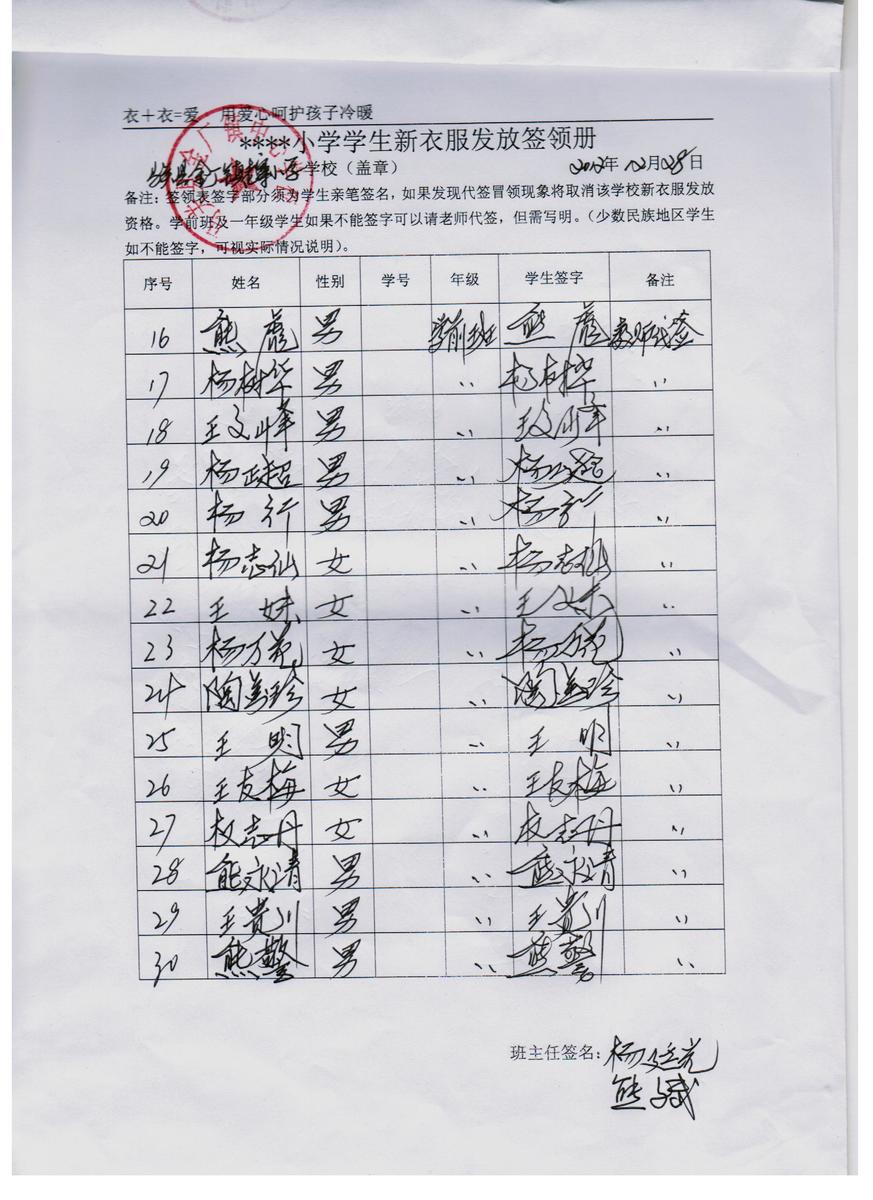 衣+衣=爱 用爱心呵护孩子冷暖
****小学学生新衣服发放签领册
小学 学校(盖章) 2012年12月28日
备注:签领表签字部分须为学生亲笔签名,如果发现代签冒领现象将取消该学校新衣服发放
资格。学前班及一年级学生如果不能签字可以请老师代签,但需写明。(少数民族地区学生
如不能签字,可视实际情况说明)。
序号 姓名 性别 学号 年级 学生签字 备注
16 熊彪 男 学前班 熊彪 教师代签
17 杨树华 男 〃 杨树华 〃
18 王文峰 男 〃 王文峰 〃
19 杨正超 男 〃 杨正超 〃
20 杨行 男 〃 杨 〃
21 杨志仙 女 〃 杨志仙 〃
22 王妹 女 〃 王妹 〃
23 杨万苑 女 〃 杨万苑 〃
24 陶美珍 女 〃 陶美珍 〃
25 王明 男 〃 王明 〃
26 王友梅 女 〃 王友梅 〃
27 权志丹 女 〃 权志丹 〃
28 熊永清 男 〃 熊永清 〃
29 王贵川 男 〃 王贵川 〃
30 熊警 男 〃 熊警 〃
班主任签名:杨廷
熊斌